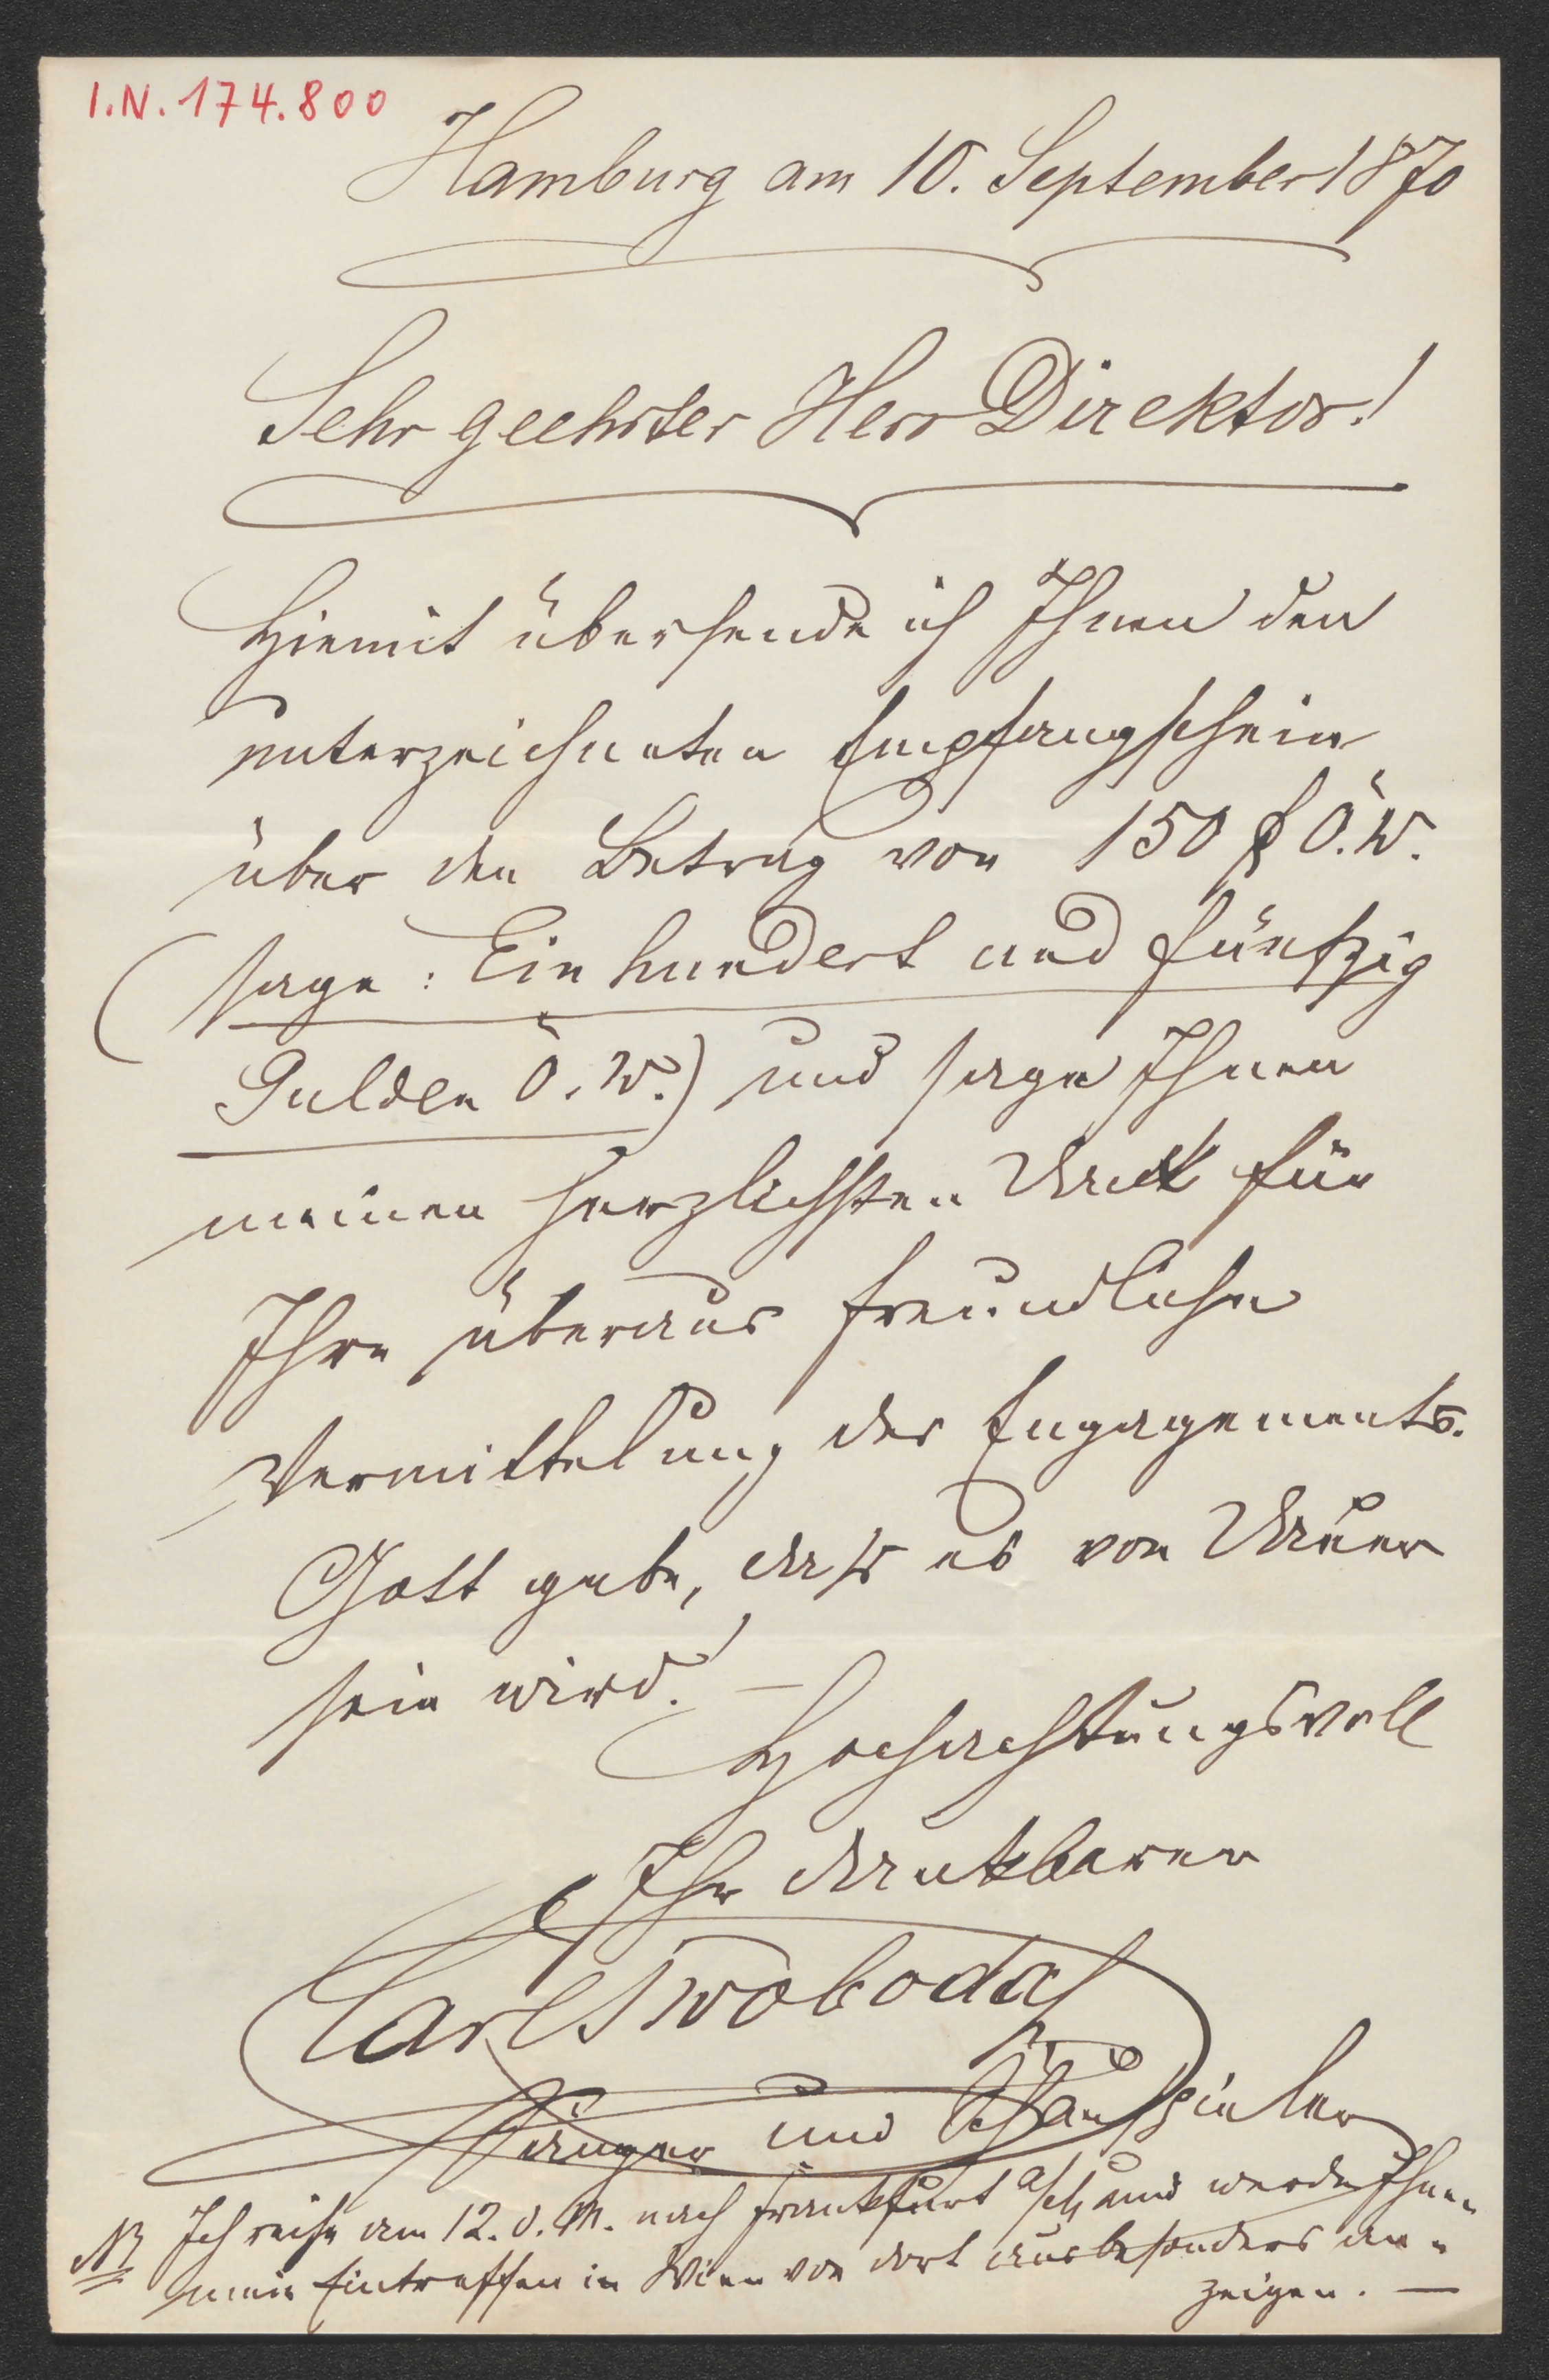 I.N. 174.800
Hamburg am 10. September 1870
Sehr geehrter Herr Direktor!
Hiemit übersende ich Ihnen den
unterzeichneten Empfangschein
über den Betrag von 150 f Ö.W.
(sage: Ein hundert und fünfzig
Gulden Ö.W.) und sage Ihnen
meinen herzlichsten Dank für
Ihre überaus freundliche
Vermittelung des Engagements.
Gott gebe, dass es von Dauer
sein wird! —
Hochachtungsvoll
Ihr dankbarer
Carl Swoboda
Sänger und Schauspieler
NB Ich reise am 12. d. M. nach Frankfurt a/ und werde Ihnen
mein Eintreffen in Wien von dort aus besonders an-
zeigen. —